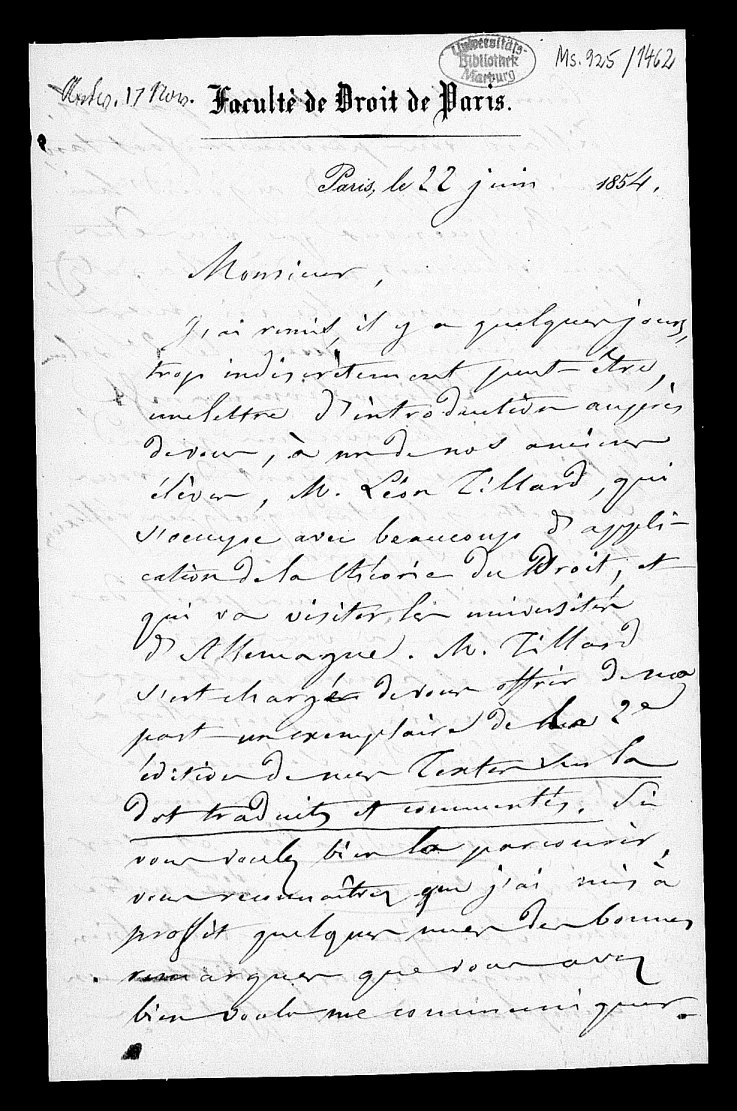 Universitäts-
Bibliothek
Marburg
Ms. 925/1462
17 Nov.
Faculté de Droit de Paris.
Paris, le 22 juin 1854.
Monsieur,
J'ai remis, il y a quelques jours,
trop indiscrètement peut-être,
une lettre d'introduction auprès
de vous, à un de nos anciens
élèves, M. Léon Tillard, qui
s'occupe avec beaucoup d'appli-
cation de la théorie du Droit, et
qui va visiter les universités
d'Allemagne. M. Tillard
s'est chargé de vous offrir de ma
part un exemplaire de la 2e
édition de mes Textes sur la
dot traduits et commentés. Si
vous voulez bien le parcourir,
vous reconnaîtrez que j'ai mis à
profit quelques unes des bonnes
remarques que vous avez
bien voulu me communiquer.